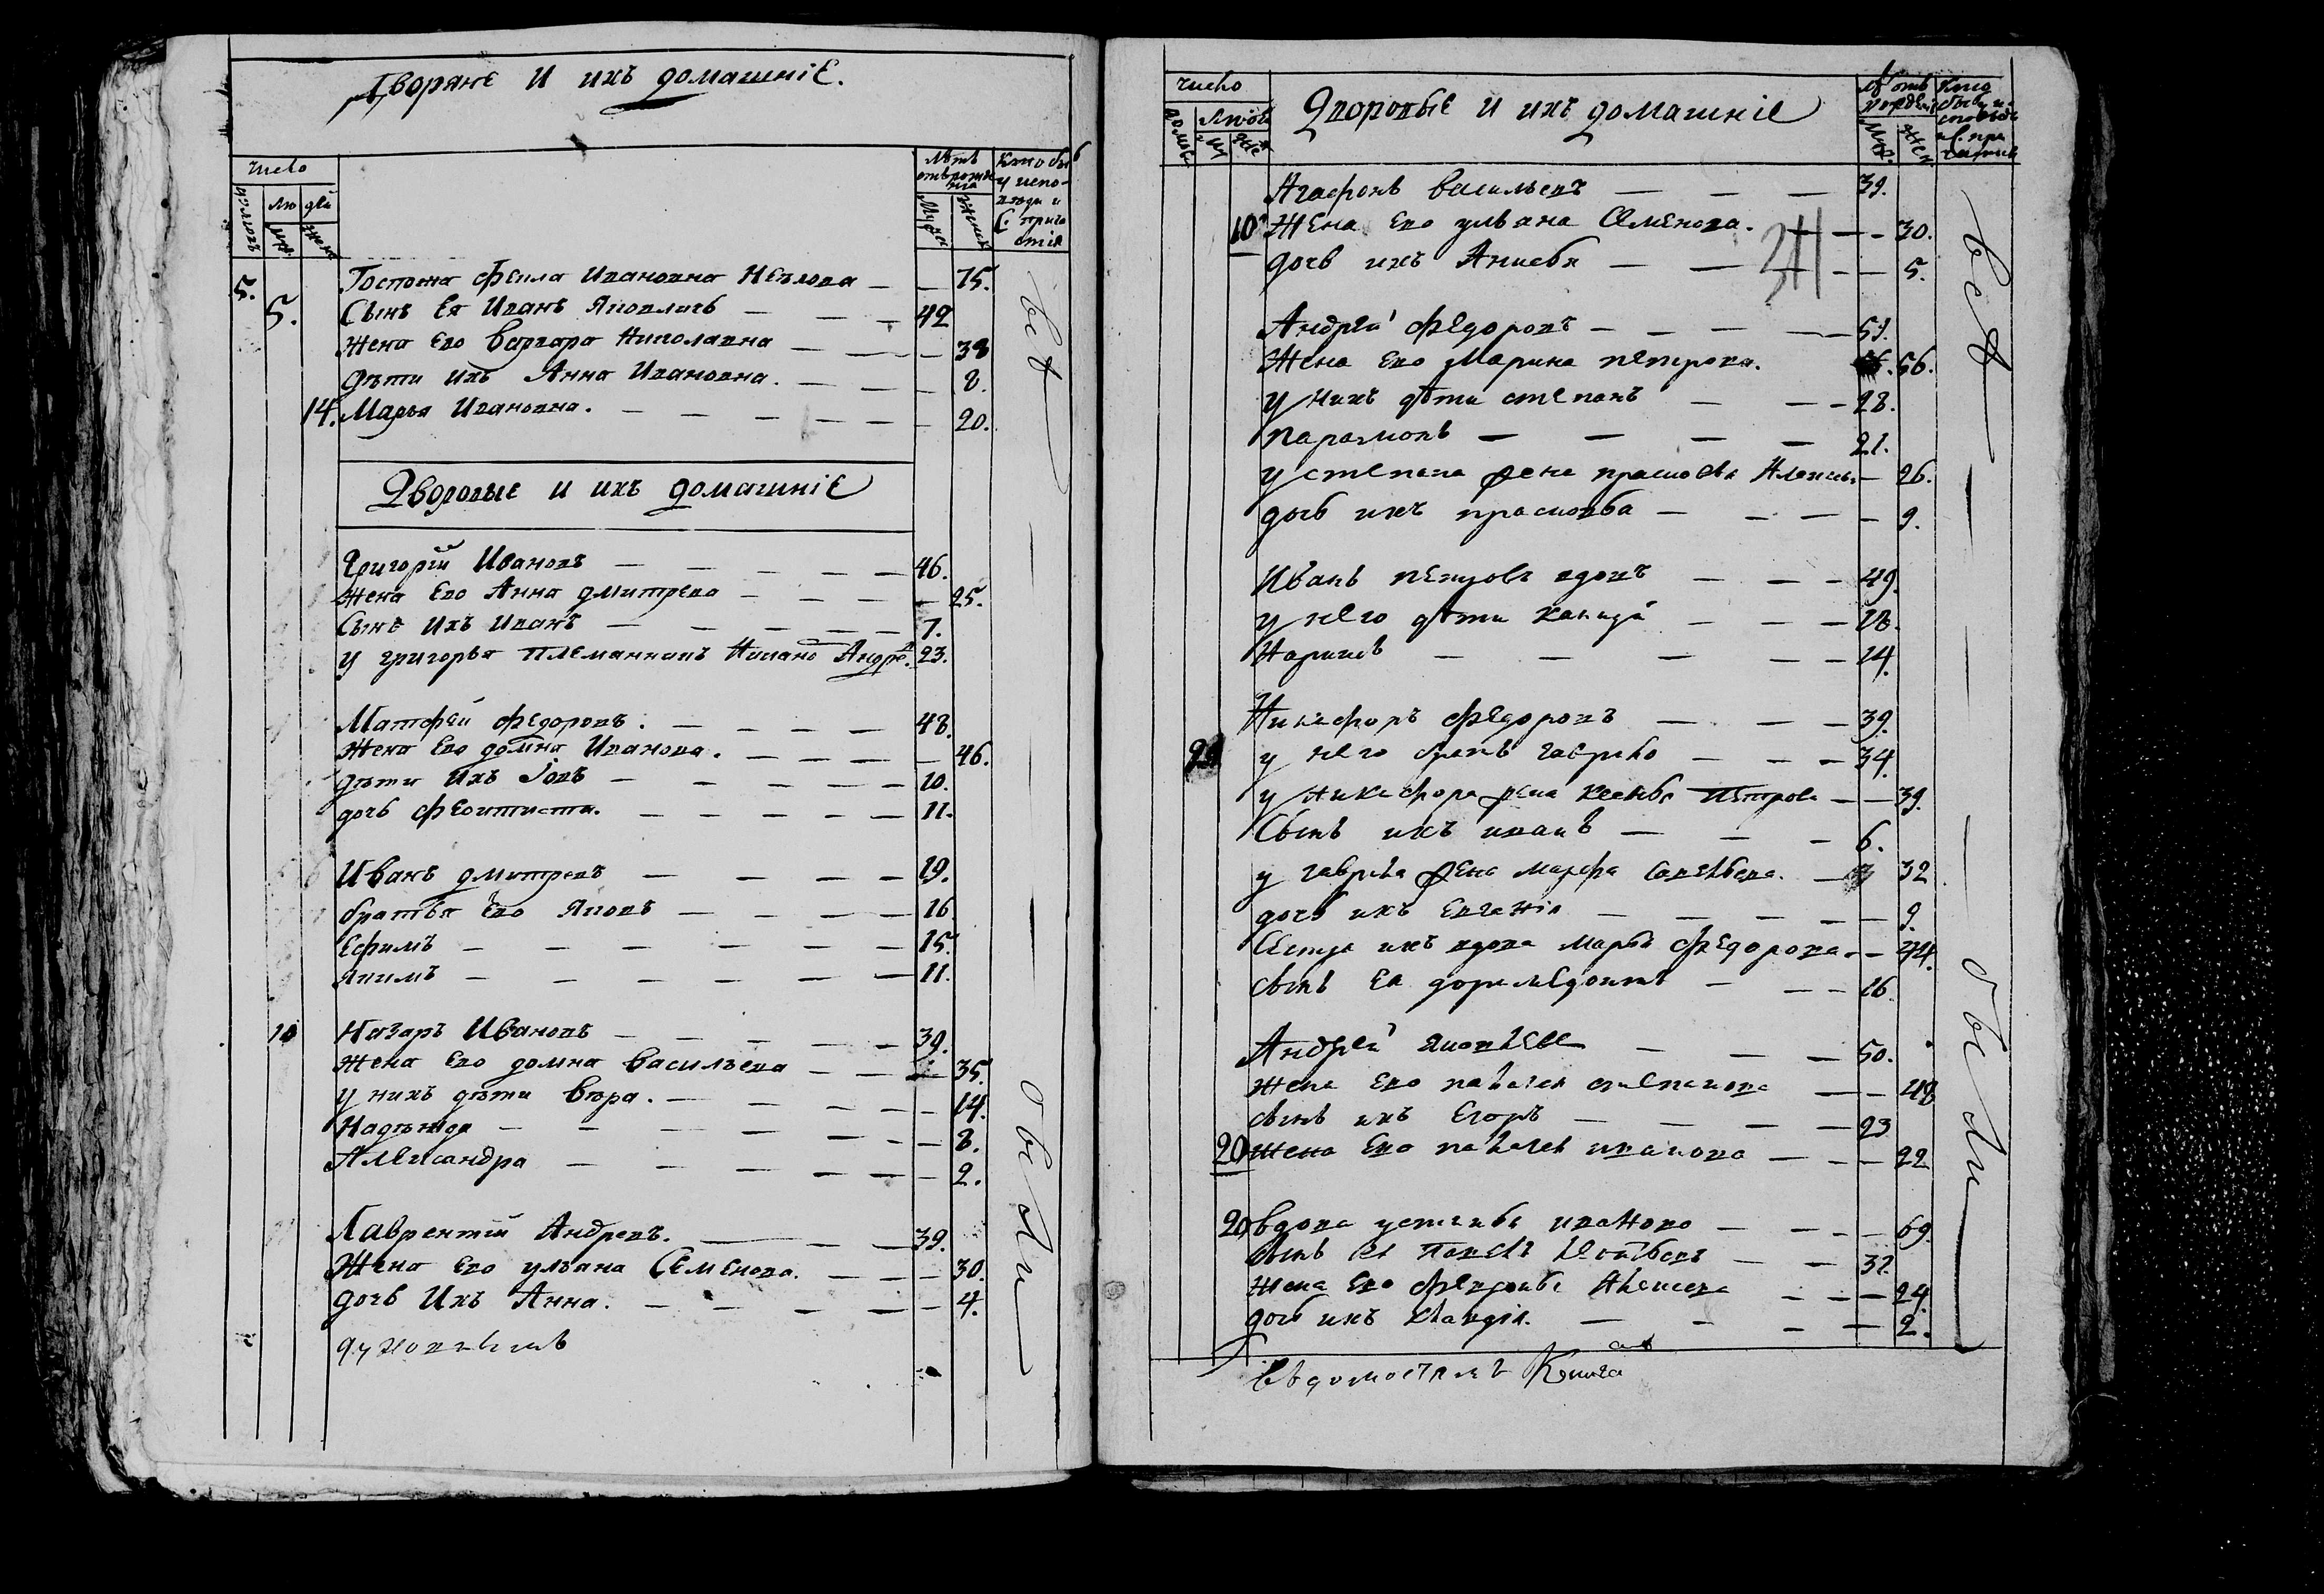 Дворяне И ихъ домашніе.
число
людей
домовъ
муж
женс
Лѣтъ отъ рожденія
Муж
женск
Кто былъ у исповеди и С. причастія
5. 5. Госпожа Фекла Ивановна — — 75.
Сынъ Ея Иванъ Яковличъ — — — 42
Жена Его Варвара Николавна — — — 38
Дѣти ихъ Анна Ивановна. — — — 8.
14. Марья Ивановна. — — — — — 20.
Дворовые и ихъ домашніе
Григорій Ивановъ — — — — — 46.
Жена Его Анна дмитрева — — — — 25.
Сынъ Ихъ Иванъ — — — — — 7.
у григорья племанникъ Андре. 23.
Матфей федоровъ. — — — — 48.
Жена Его домна Иванова. — — — — 46.
дѣти ихъ Іовъ — — — — — 10.
дочь феоктиста. — — — — — 11.
Иванъ дмитревъ — — — — 19.
братья Его Яковъ — — — — 16.
Ефимъ — — — — — — 15.
Якимъ — — — — — — 11.
10 Назаръ Ивановъ — — — — — 39.
Жена Его домна Васильева — — — 35.
у нихъ дѣти Вѣра. — — — — — 14.
Надѣжда — — — — — — 8.
Александра — — — — — — 2.
Лаврентій Андревъ. — — — 39.
Жена Его ульяна Семенова. — — — 30.
дочь Ихъ Анна. — — — — — 4.
всѣ — — — были
число
людей
домовъ
муж
жен
Дворовые и ихъ домашніе
Лѣ отъ рожденія
Муж.
Жен.
Кто былъ у исповеди и С. причастія
Агафонъ Васильевъ — — — 39.
10 Жена Его ульяна Семенова. — — 30.
дочь ихъ Анисья — — — — 5.
Андрей Федоровъ — — — — 59.
Жена Его Марина петрова. 56.
у нихъ дѣти степанъ — — — 28.
парамонъ — — — — 21.
у степана жена прасковья Алексѣ. — 26.
дочь ихъ прасковья — — — — 9.
Иванъ петровъ вдовъ — — — 49.
у него дѣти — — — 18.
— — — — — 14.
Никифоръ Федоровъ — — — 39.
у него братъ гаврило — — — 34.
у Никифора жена ксенья петрова — — 39.
Сынъ ихъ иванъ — — — 6.
у гаврила жена марфа савельева. — 32
дочь ихъ Евгенія — — — — — 9.
Сестра ихъ вдова марья Федорова. — — 44.
сынъ Ея доримедонтъ — — — 16.
Андрей яковлевъ — — — 50.
Жена Его пелагея степанова — — 48
сынъ ихъ Егоръ — — — — 23
20 жена Его пелагея иванова — — — 22
20 вдова устинья иванова — — — 69.
сынъ Ея Павелъ — — 32.
Жена Его февронья Алексева — — — 24.
дочь ихъ клавдія. — — — — 2.
всѣ — — — были